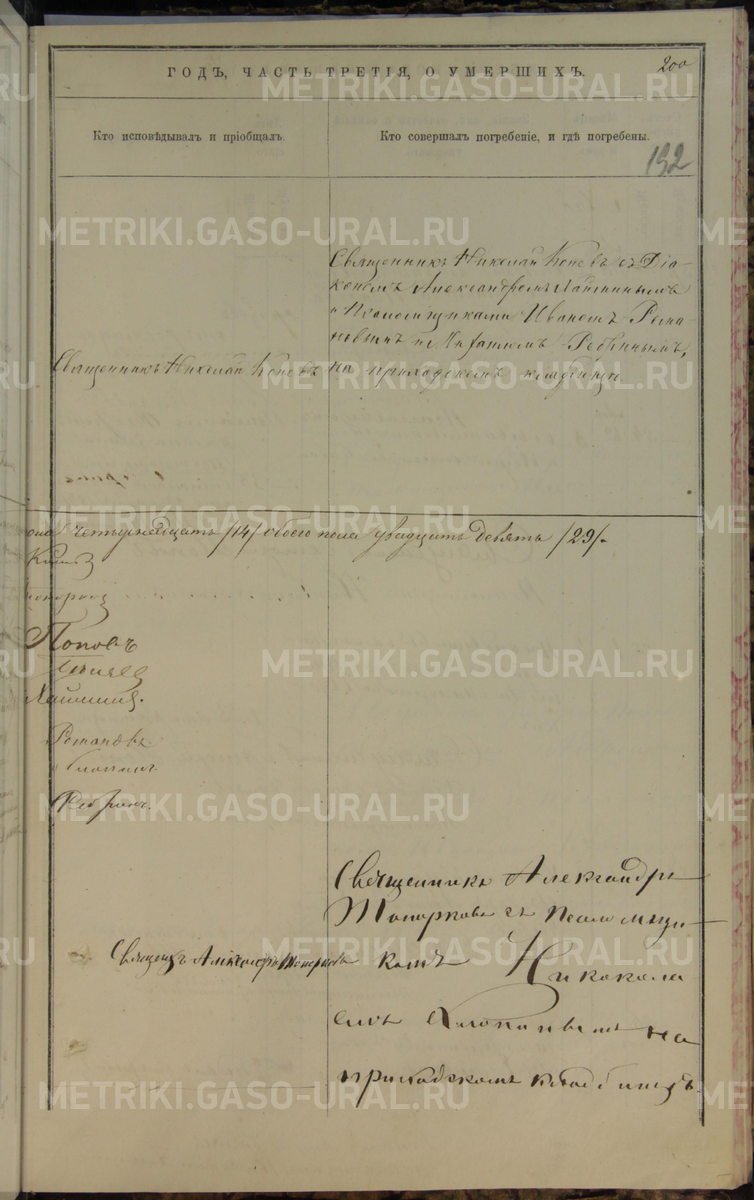 200
ГОДЪ, ЧАСТЬ ТРЕТІЯ, О УМЕРШИХЪ.
Кто исповѣдывалъ и пріобщалъ.
Кто совершалъ погребеніе, и гдѣ погребены.
192
Священникъ Николай Поповъ съ Діа-
кономъ Александромъ Хайминымъ
и Псаломщиками Иваномъ Рома-
новымъ и Ребринымъ,
на приходскомъ кладбищѣ
Священникъ Николай Поповъ
четырнадцать /14/ обоего пола двадцать девять /29/.
Поповъ
Хаминъ.
Романовъ
Ребринъ.
Священникъ Александръ
Топорковъ съ Псаломщи-
комъ Никола
емъ на
приходскомъ кладбищѣ.
Священ.ъ Александръ Топорковъ
METRIKI.GASO-URAL.RU